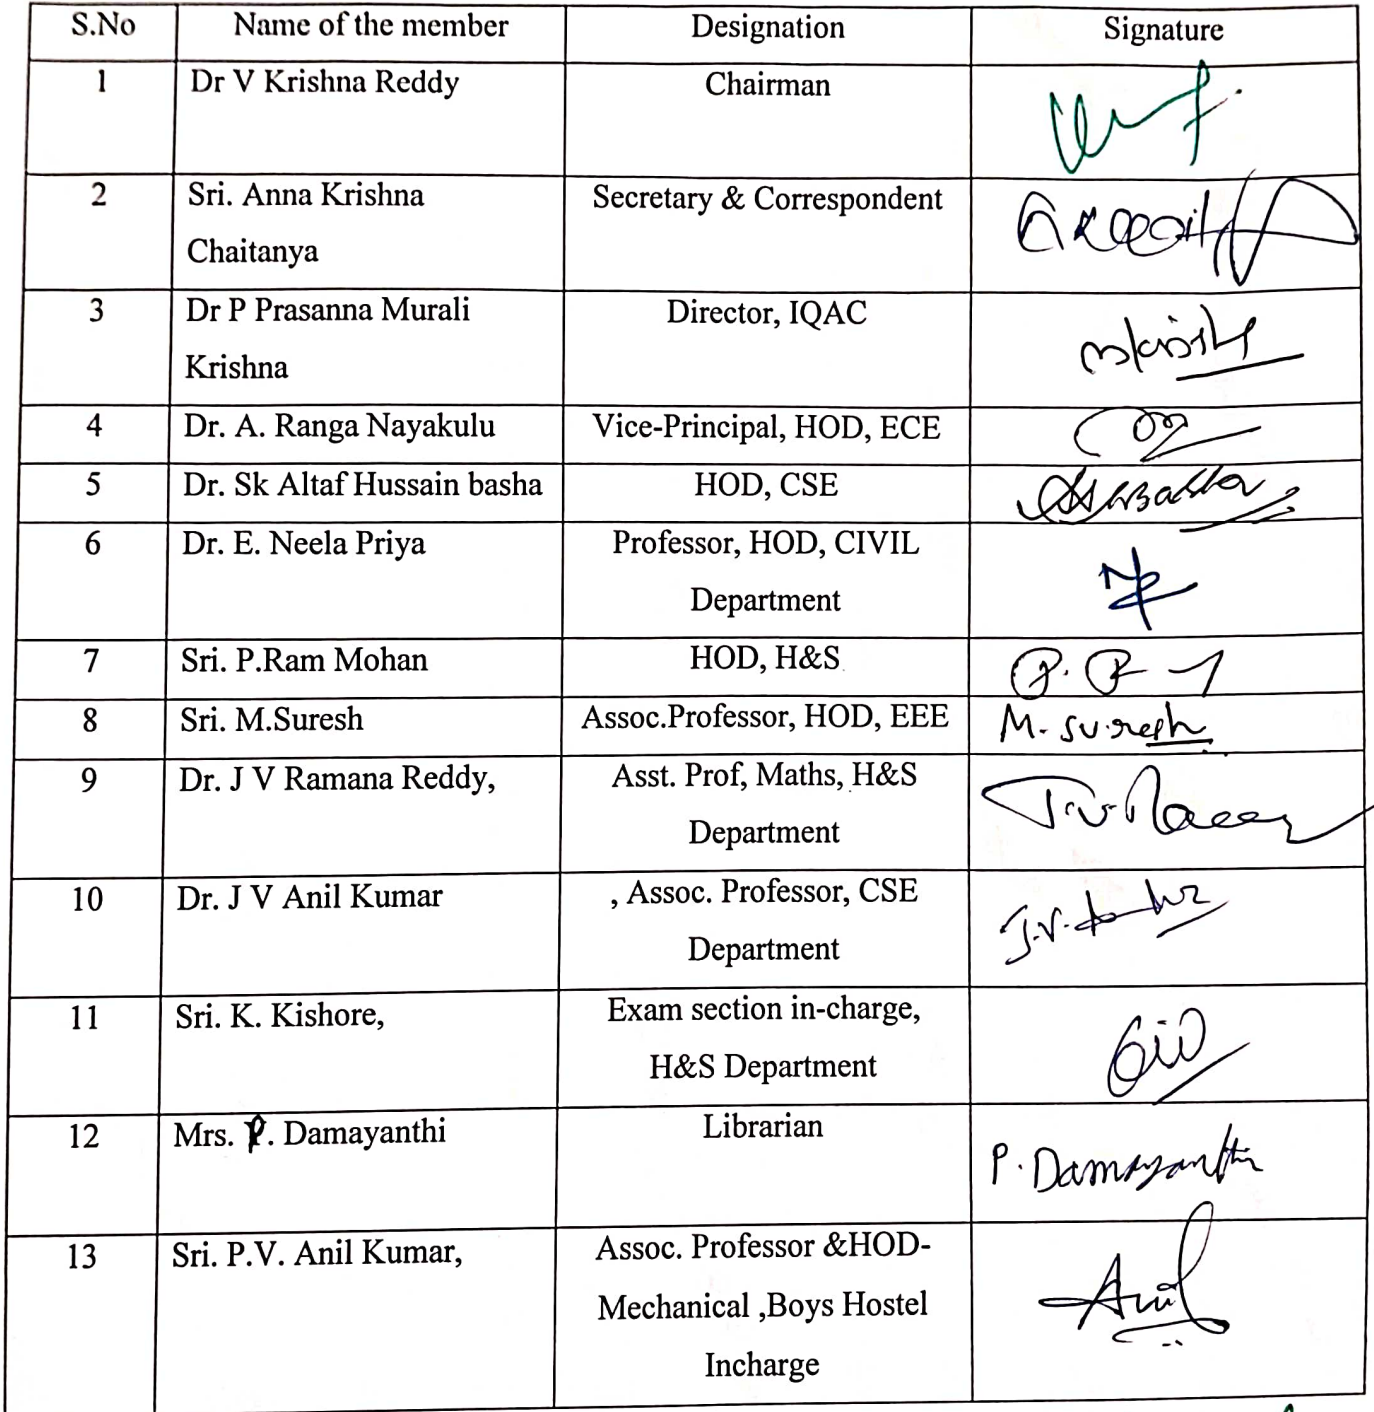 S.No Name of the member Designation Signature
1 Dr V Krishna Reddy Chairman
2 Sri. Anna Krishna Secretary & Correspondent
Chaitanya
3 Dr P Prasanna Murali Director, IQAC
Krishna
4 Dr. A. Ranga Nayakulu Vice-Principal, HOD, ECE
5 Dr. Sk Altaf Hussain basha HOD, CSE
6 Dr. E. Neela Priya Professor, HOD, CIVIL
Department
7 Sri. P.Ram Mohan HOD, H&S
8 Sri. M.Suresh Assoc.Professor, HOD, EEE M. Suresh
9 Dr. J V Ramana Reddy, Asst. Prof, Maths, H&S
Department
10 Dr. J V Anil Kumar , Assoc. Professor, CSE
Department
11 Sri. K. Kishore, Exam section in-charge,
H&S Department
12 Mrs. P. Damayanthi Librarian P. Damayanthi
13 Sri. P.V. Anil Kumar, Assoc. Professor &HOD- Anil
Mechanical ,Boys Hostel
Incharge